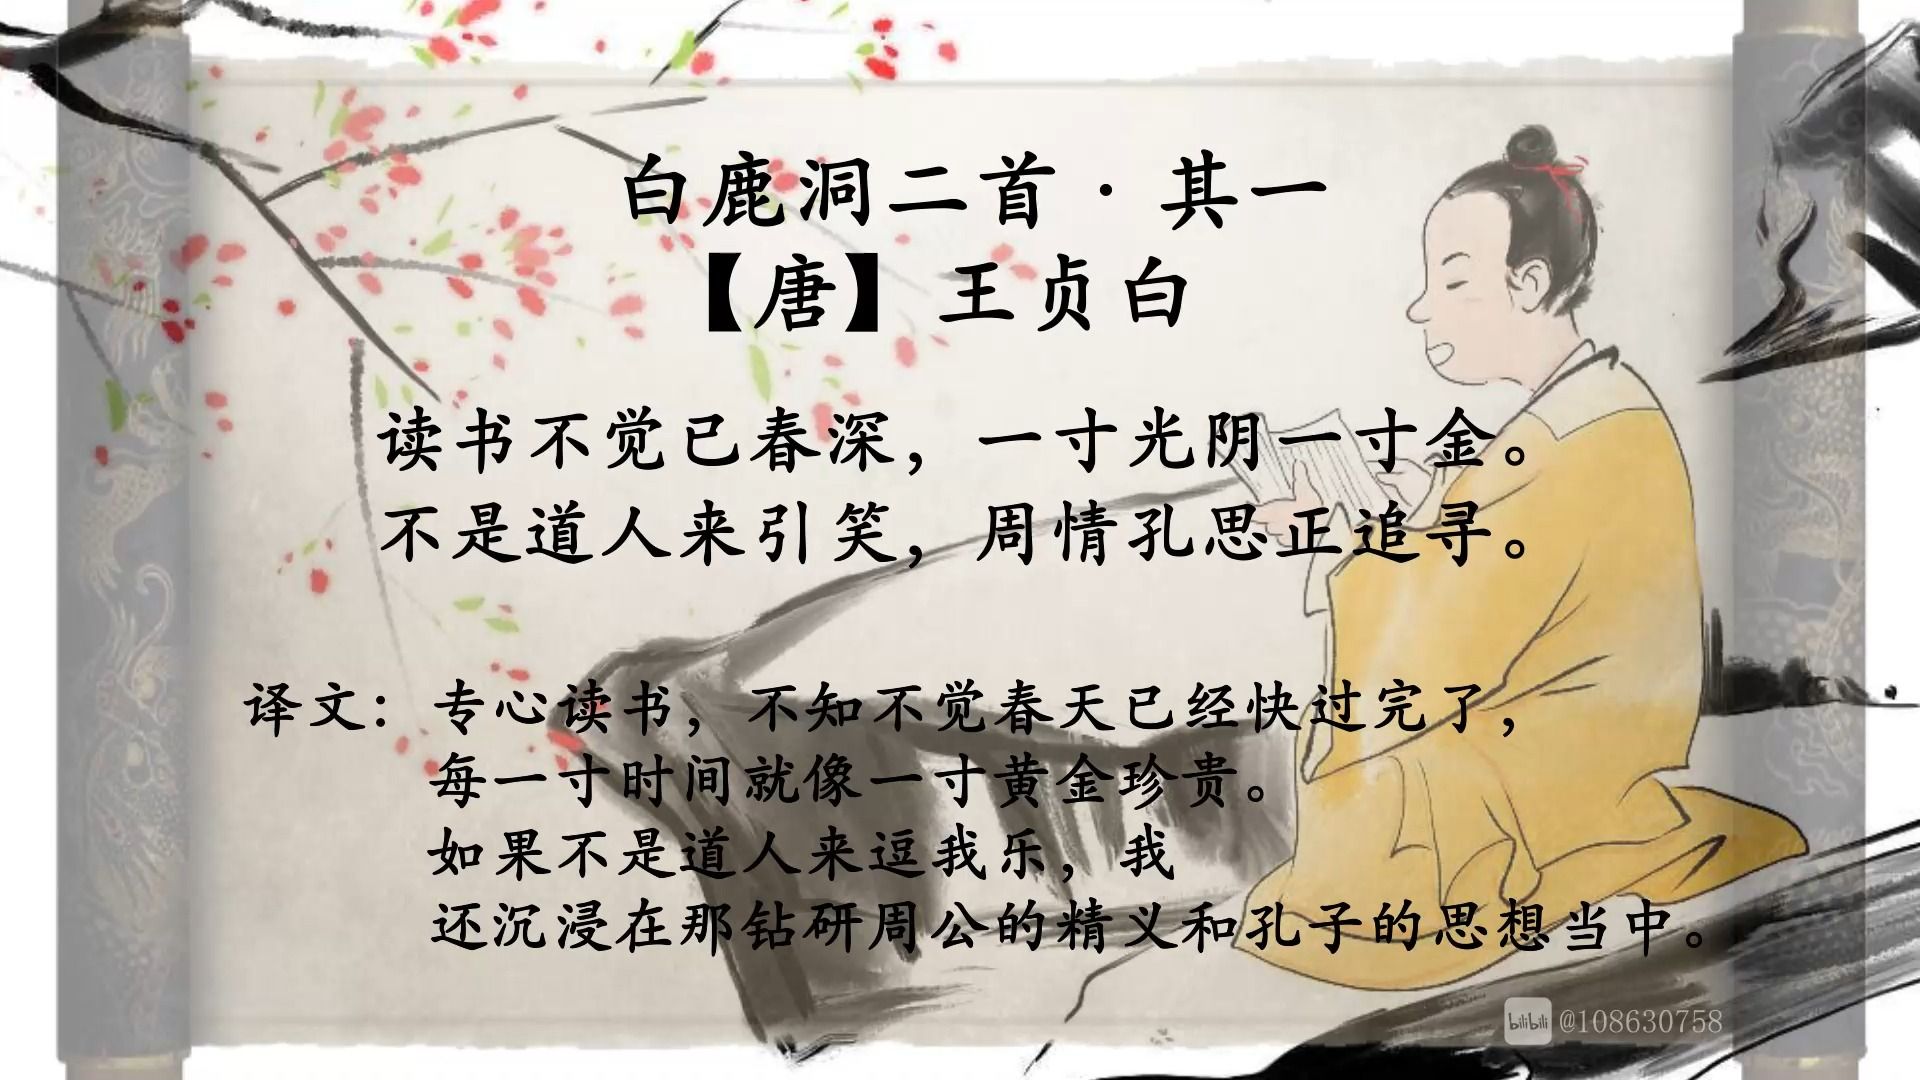 白鹿洞二首·其一
【唐】王贞白
读书不觉已春深，一寸光阴一寸金。
不是道人来引笑，周情孔思正追寻。
译文：专心读书，不知不觉春天已经快过完了，
每一寸时间就像一寸黄金珍贵。
如果不是道人来逗我乐，我
还沉浸在那钻研周公的精义和孔子的思想当中。
bilibili @108630758